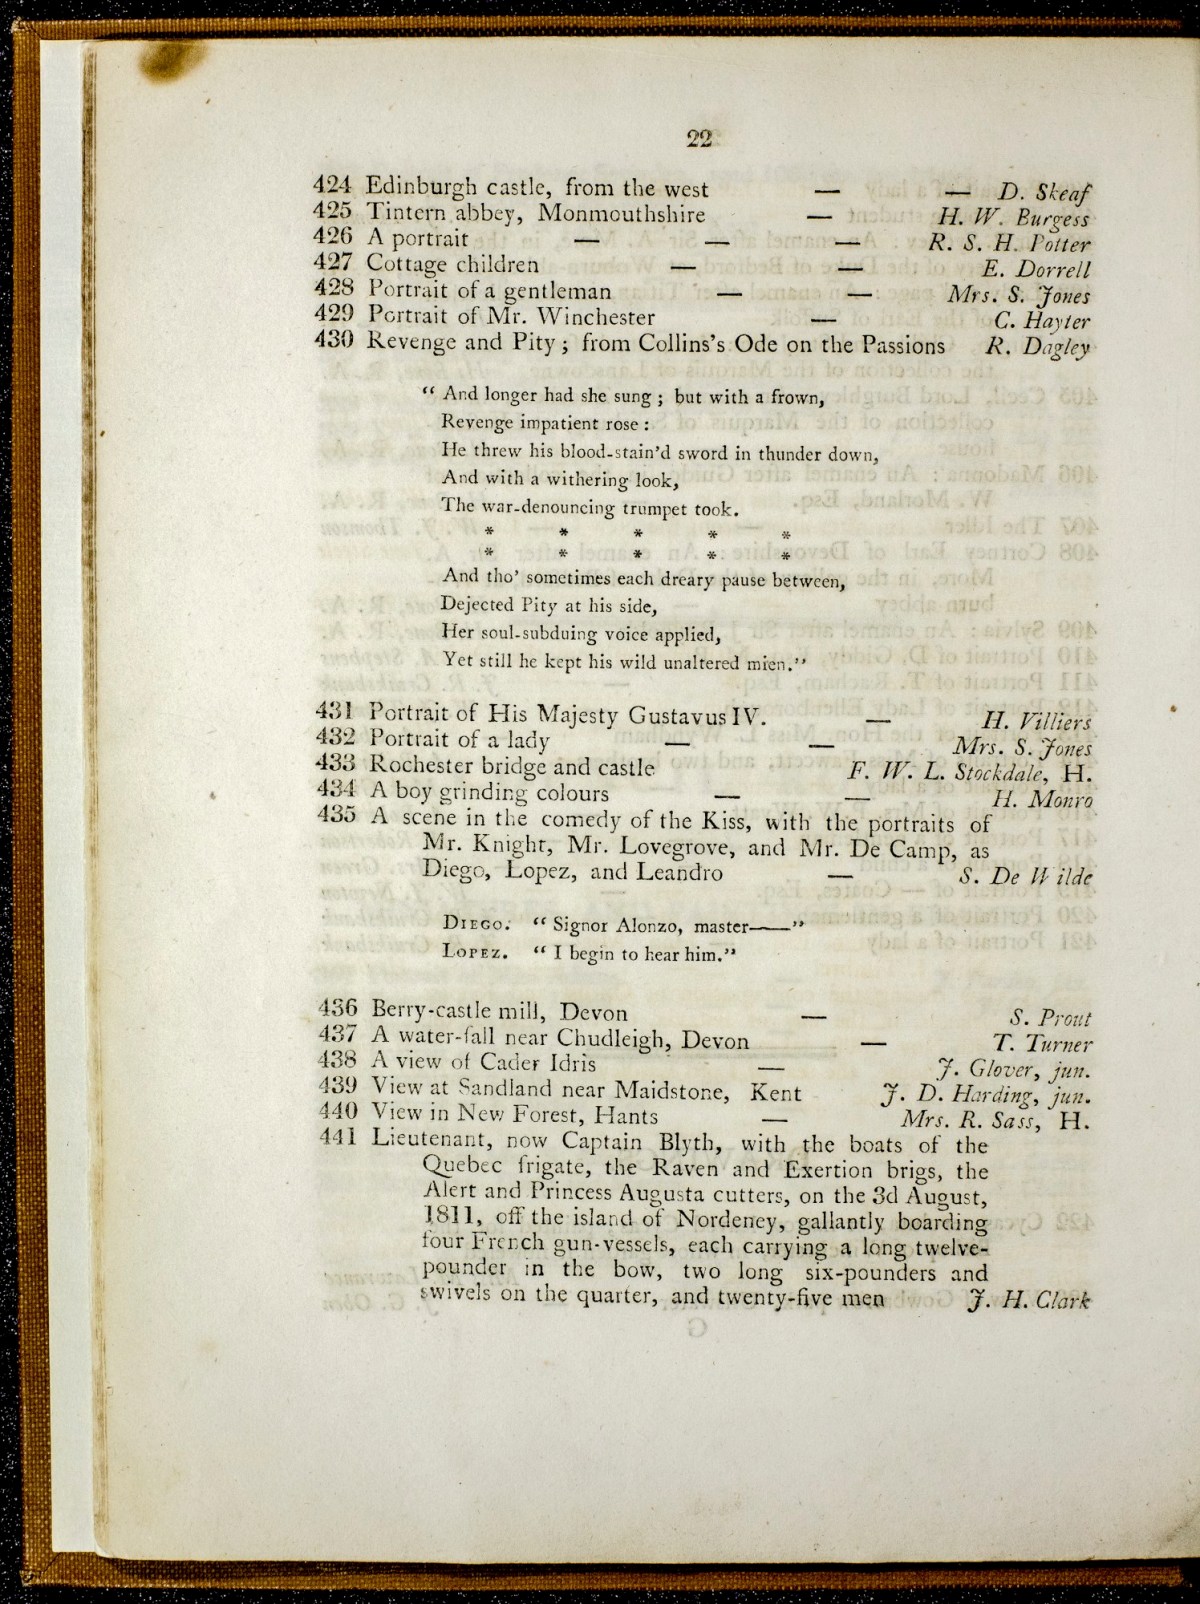 22
424 Edinburgh castle, from the west — — D. Skeaf
425 Tintern abbey, Monmouthshire — H. W. Burgess
426 A portrait — — — R. S. H. Potter
427 Cottage children — — E. Dorrell
428 Portrait of a gentleman — — Mrs. S. Jones
429 Portrait of Mr. Winchester — C. Hayter
430 Revenge and Pity; from Collins's Ode on the Passions R. Dagley
“ And longer had she sung; but with a frown,
Revenge impatient rose:
He threw his blood-stain'd sword in thunder down,
And with a withering look,
The war-denouncing trumpet took.
* * * * *
* * * * *
And tho' sometimes each dreary pause between,
Dejected Pity at his side,
Her soul-subduing voice applied,
Yet still he kept his wild unaltered mien.”
431 Portrait of His Majesty Gustavus IV. — H. Villiers
432 Portrait of a lady — — Mrs. S. Jones
433 Rochester bridge and castle F. W. L. Stockdale, H.
434 A boy grinding colours — — H. Monro
435 A scene in the comedy of the Kiss, with the portraits of
Mr. Knight, Mr. Lovegrove, and Mr. De Camp, as
Diego, Lopez, and Leandro — S. De Wilde
DIEGO. “ Signor Alonzo, master——”
LOPEZ. “ I begin to hear him.”
436 Berry-castle mill, Devon — S. Prout
437 A water-fall near Chudleigh, Devon — T. Turner
438 A view of Cader Idris — J. Glover, jun.
439 View at Sandland near Maidstone, Kent J. D. Harding, jun.
440 View in New Forest, Hants — Mrs. R. Sass, H.
441 Lieutenant, now Captain Blyth, with the boats of the
Quebec frigate, the Raven and Exertion brigs, the
Alert and Princess Augusta cutters, on the 3d August,
1811, off the island of Nordeney, gallantly boarding
four French gun-vessels, each carrying a long twelve-
pounder in the bow, two long six-pounders and
swivels on the quarter, and twenty-five men J. H. Clark